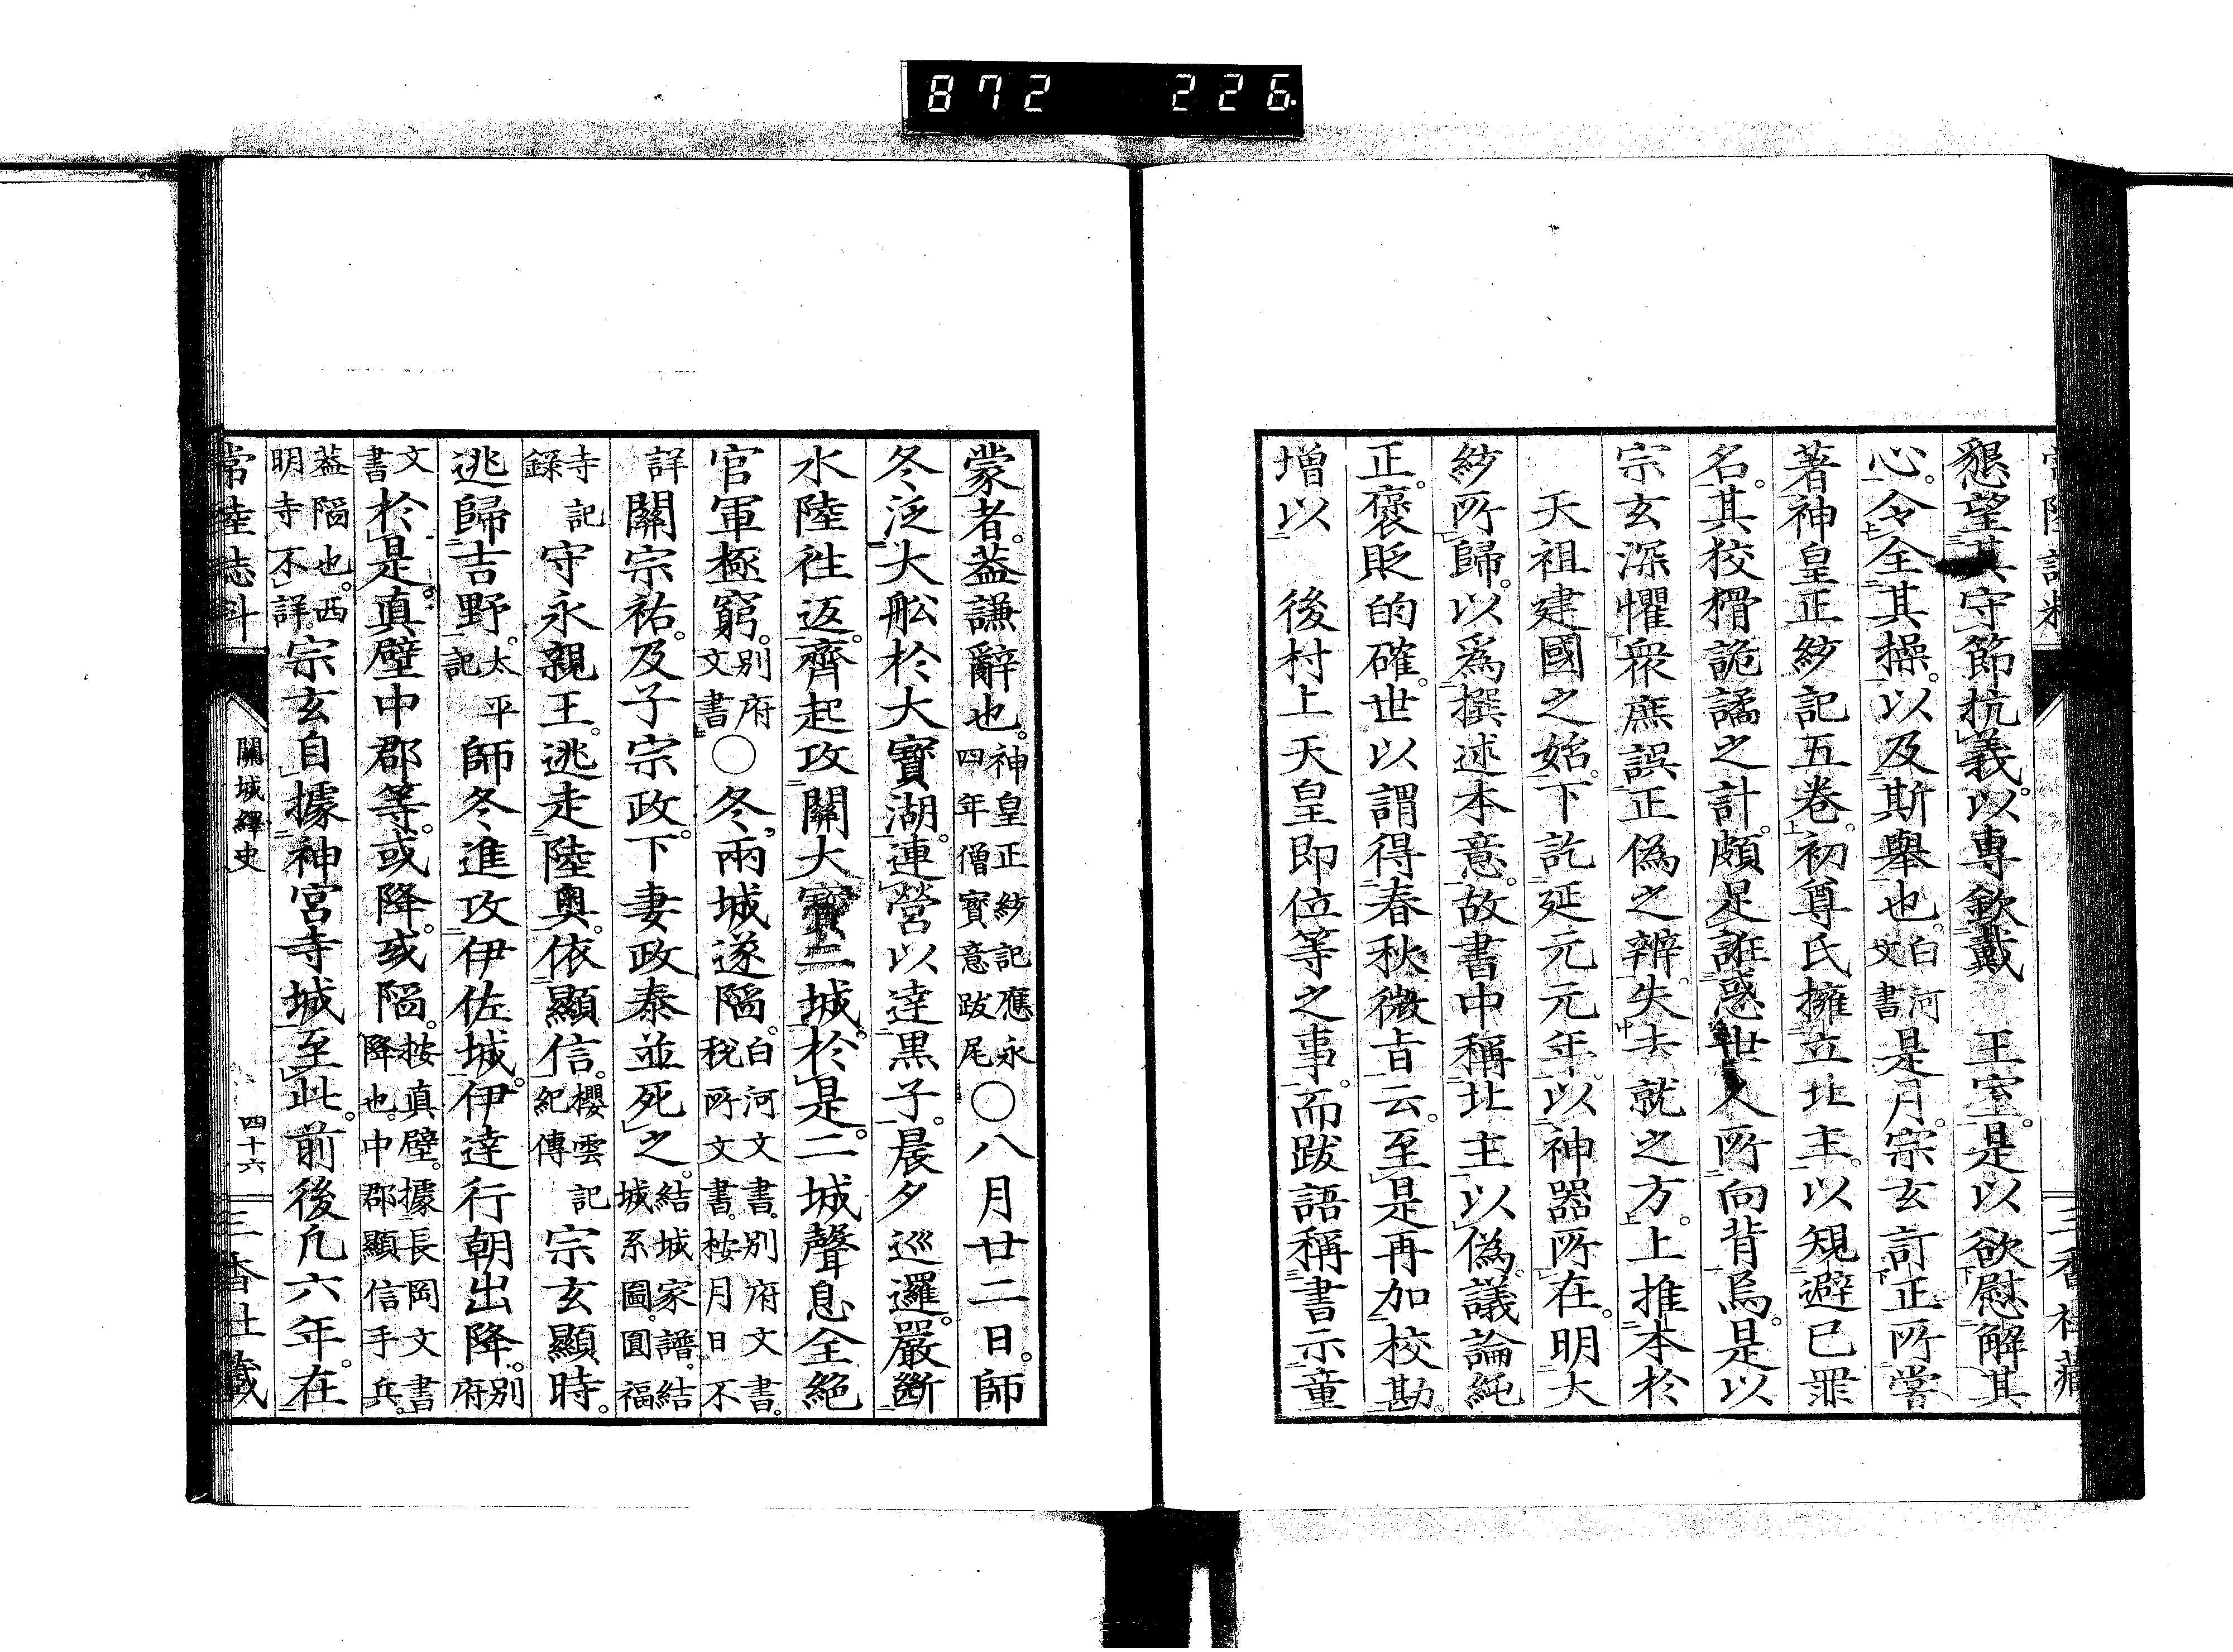 872 226
懇望其守節抗義。以專欽戴　王室。是以欲慰解其
心。令全其操。以及斯舉也。白河文書是月。宗玄訂正所嘗
著神皇正紗記五卷。初尊氏擁立北主。以規避己罪
名。其狡猾詭譎之計。頗足誑惑世人所向背焉。是以
宗玄深懼衆庶誤正偽之辨。失去就之方。上推本於
天祖建國之始。下訖延元元年。以神器所在。明大
紗所歸。以爲撰述本意。故書中稱北主以偽。議論純
正。褒貶的確。世以謂得春秋微旨云。至是再加校勘。
増以　後村上天皇即位等之事。而跋語稱書示童
蒙者。蓋謙辭也。神皇正紗記應永四年僧寳意跋尾〇八月廿二日。師
冬泛大舩於大寳湖。連營以逹黒子。晨夕巡邏。嚴斷
水陸往返。齊起攻關大寳二城。於是。二城聲息全絕
官軍極窮。別府文書〇冬。兩城遂陷。白河文書。別府文書。税所文書。桉月日不
詳關宗祐。及子宗政。下妻政泰並死之。結城家譜。結城系圖。圓福
寺記録守永親王。逃走陸奥。依顯信。櫻雲記紀傳宗玄顯時。
逃歸吉野。太平記師冬進攻伊佐城。伊逹行朝出降。別府
文書於是。真壁中郡等。或降。或陷。按真壁。據長岡文書降也。中郡顯信手兵。
蓋陷也。西明寺不詳。宗玄自據神宮寺城至此。前後凢六年。在
常陸志料　關城繹史　四十六　三香社藏